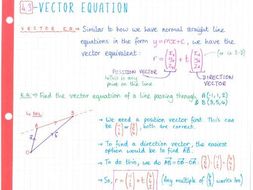 4.3 - VECTOR EQUATION
VECTOR EQ. → Similar to how we have normal straight line
equations in the form y=mx+c, we have the
vector equivalent:
POSITION VECTOR
which is any
point on this line
DIRECTION
VECTOR
E.G. → Find the vector equation of a line passing through A(-1,1,2)
& B(3,5,4)
→ We need a position vector first. This can
be or both are correct.
→ To find a direction vector, the easiest
option would be to find AB.
→ To do this, we do AB = OB - OA
→ So, r = (Any multiple of works too)